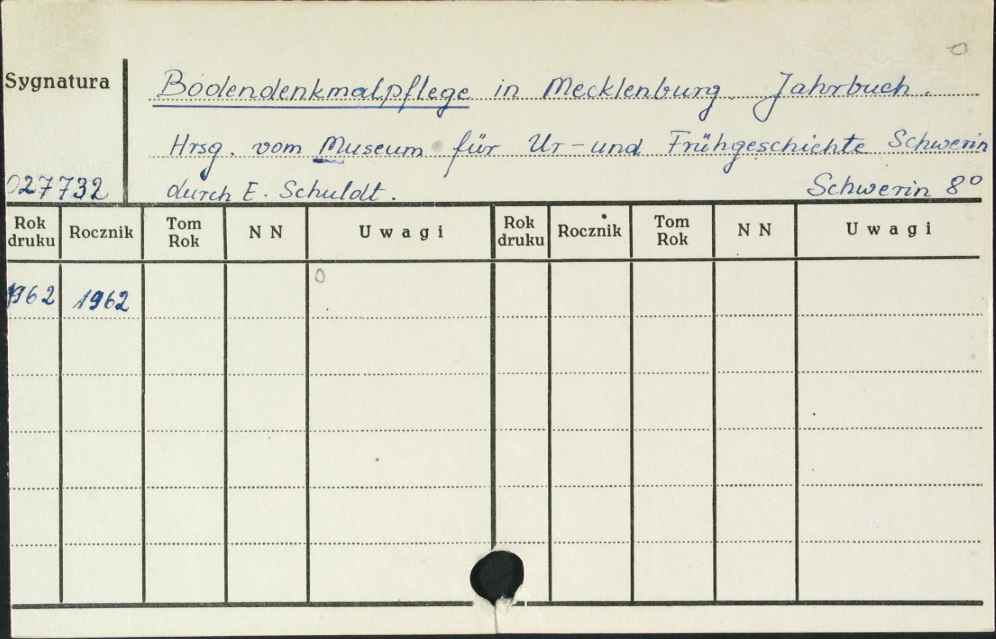 Sygnatura
Bodendenkmalpflege in Mecklenburg. Jahrbuch.
Hrsg. vom Museum für Ur- und Frühgeschichte Schwerin
027732 durch E. Schuldt. Schwerin 8°
Rok druku Rocznik Tom Rok N N Uwagi Rok druku Rocznik Tom Rok N N Uwagi
1962 1962